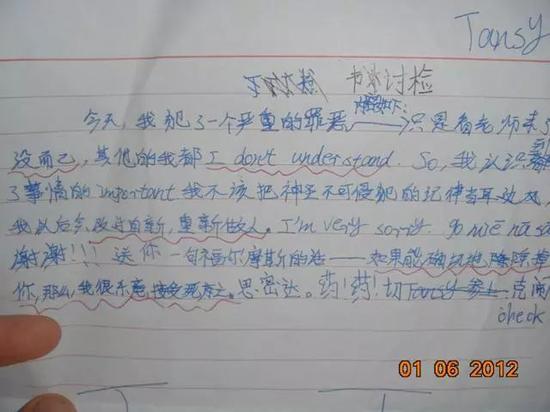 Tansy
书面讨检
今天,我犯了一个严重的罪恶——只是看老师来了
没而已,其他的我都 I don't understand. So,我认识到
了事情的 important 我不该把神圣不可侵犯的纪律当耳边风,
我以后会改过自新,重新做人。I'm very sorry.
谢谢!!! 送你一句福尔摩斯的话——如果能确切地
你,那么,我很乐意接受死亡。思密达。药!药!切
check
01 06 2012